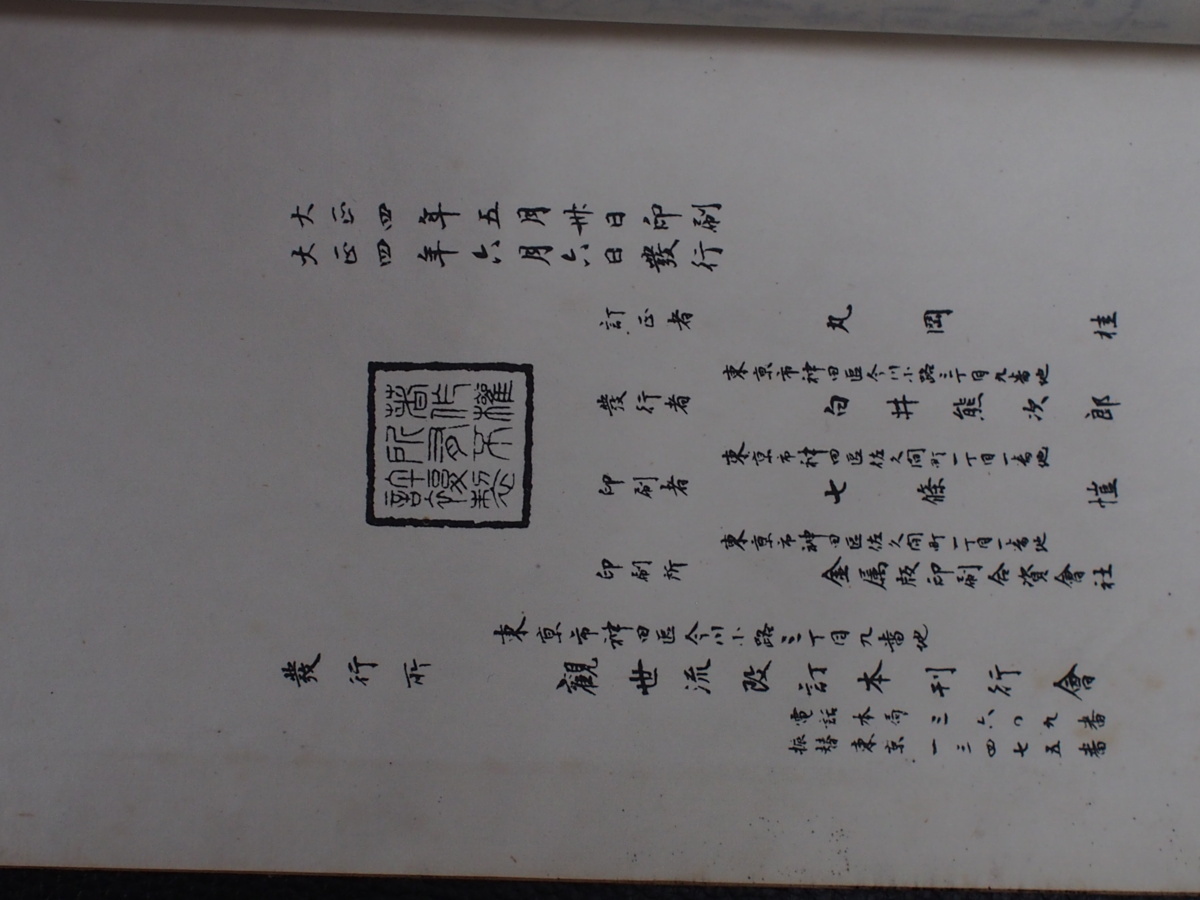 大正四年五月卅日印刷
大正四年六月六日發行
訂正者 丸岡桂
東京市神田區今川小路三丁目九番地
發行者 白井熊次郎
東京市神田區佐久間町一丁目一番地
印刷者 七條愷
東京市神田區佐久間町一丁目一番地
印刷所 金属版印刷合資會社
著作權
所有不
許複製
東京市神田區今川小路三丁目九番地
發行所 觀世流改訂本刊行會
電話本局三六〇九番
振替東京一三四七五番